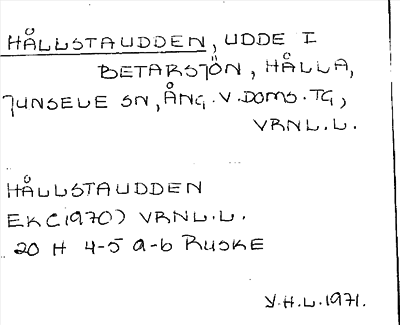 HÅLLSTAUDDEN, UDDE I
BETARSJÖN, HÅLLA,
JUNSELE SN, ÅNG. V. DOMS. TG,
VRNL.L.
HÅLLSTAUDDEN
EK (1970) VRNL.L.
20 H 4-5 a-b RUSKE
Y.H.L. 1971.